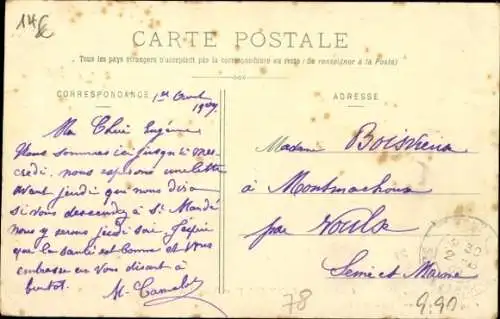 14€
CARTE POSTALE
Tous les pays étrangers n'acceptent pas la correspondance au recto (Se renseigner à la Poste)
CORRESPONDANCE
ADRESSE
1er Avril
1907
Ma Chère Eugénie
Nous sommes ici jusqu'à Mer-
credi. nous espérons une lettre
avant jeudi qui nous dira
si vous descendez à St Mandé
nous y serons jeudi soir. J'espère
que la santé est bonne et vous
embrasse en vous disant à
bientot.
M. Camelot
Madame Boisvieux
à Montmachoux
par Voulx
Seine et Marne
78
9.90